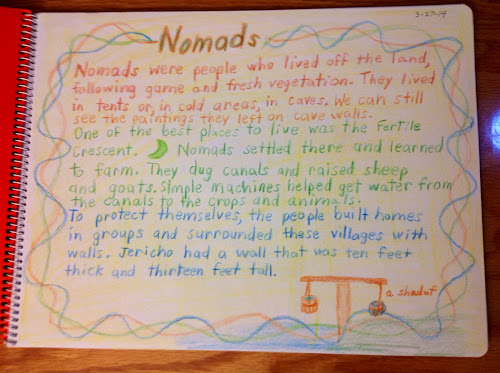 3-27-14
Nomads
Nomads were people who lived off the land,
following game and fresh vegetation. They lived
in tents or, in cold areas, in caves. We can still
see the paintings they left on cave walls.
One of the best places to live was the Fertile
Crescent. Nomads settled there and learned
to farm. They dug canals and raised sheep
and goats. Simple machines helped get water from
the canals to the crops and animals.
To protect themselves, the people built homes
in groups and surrounded these villages with
walls. Jericho had a wall that was ten feet
thick and thirteen feet tall.
a shaduf